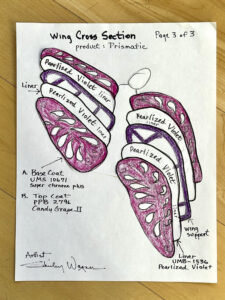 Wing Cross Section
Page 3 of 3
product: Prismatic
Liner
Pearlized Violet liner
Pearlized Violet liner
Pearlized Violet
Pearlized Violet
A. Base Coat
UMS 10671
super chrome plus
B. Top Coat
PPB 2796
Candy Grape II
wing
support
Liner
UMB-1536
Pearlized Violet
Artist